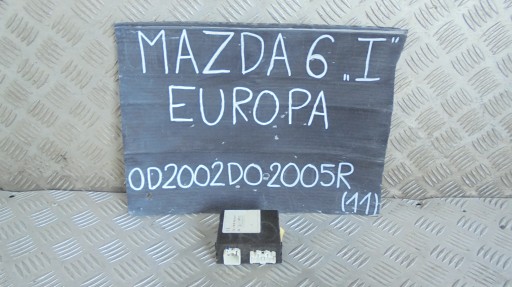 MAZDA 6 „I"
EUROPA
OD2002DO-2005R
(11)